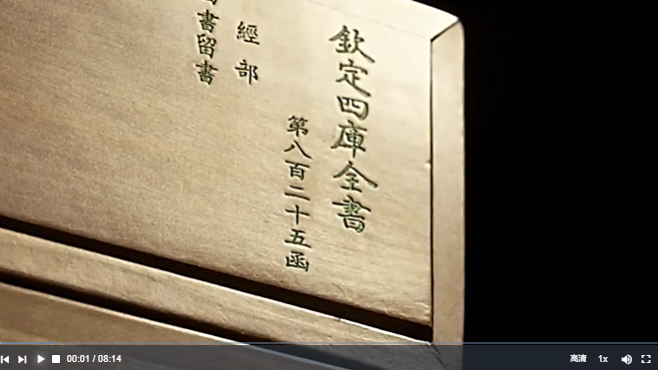 欽定四庫全書
第八百二十五函
經部
書留書
00:01 / 08:14
高清
1x